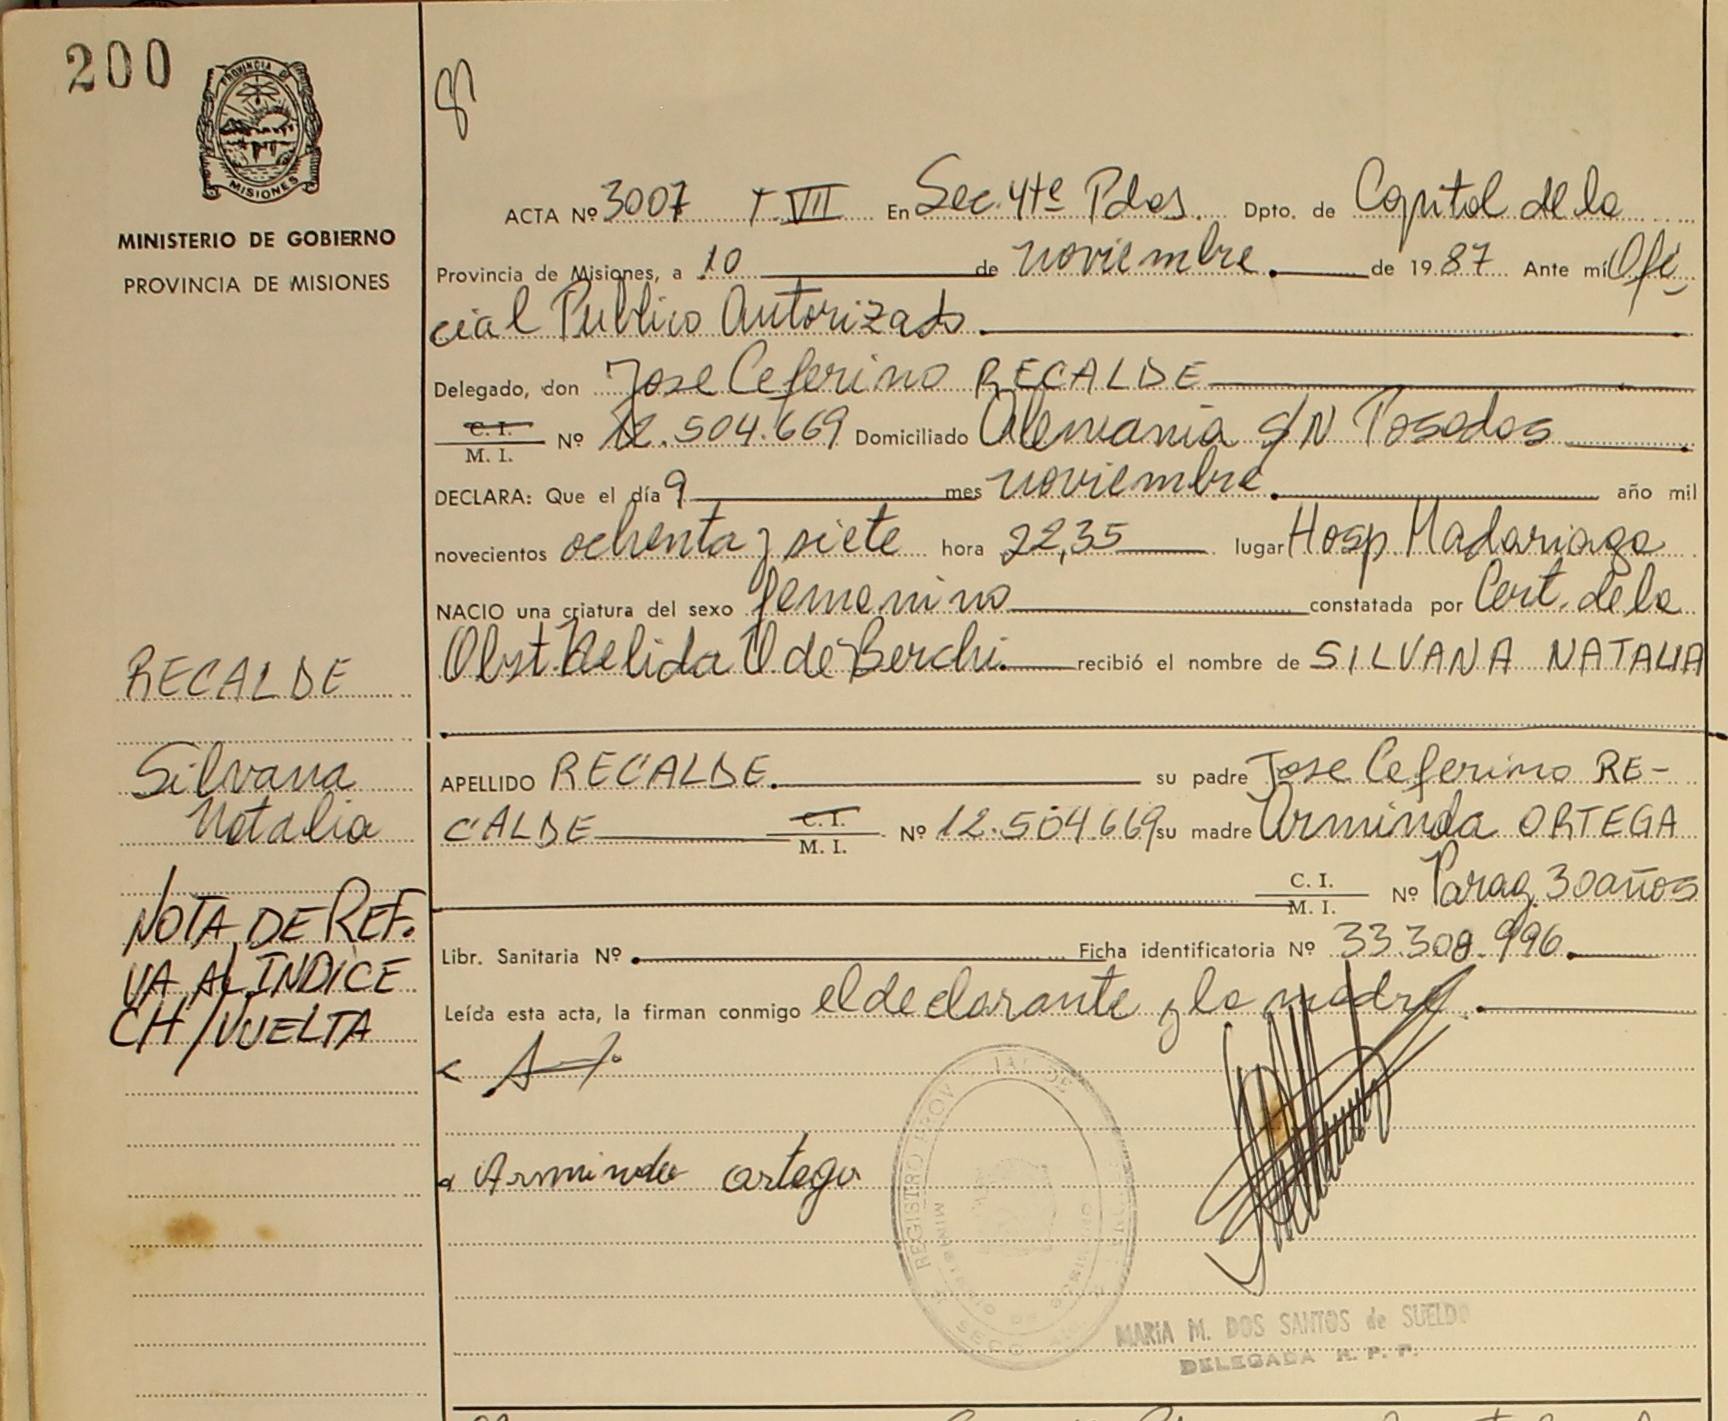 200
PROVINCIA DE
MISIONES
MINISTERIO DE GOBIERNO
PROVINCIA DE MISIONES
RECALDE
Silvana
Natalia
NOTA DE REF.
VA AL INDICE
CH/VUELTA
ACTA Nº 3007 T. VII En Sec. 4te Pdas. Dpto. de Capital de la
Provincia de Misiones, a 10 de noviembre. de 1987 Ante mí Ofi
cial Publico Autorizado.
Delegado, don Jose Ceferino RECALDE
C. I.
M. I. Nº 12.504.669 Domiciliado Alemania S/N Posadas
DECLARA: Que el día 9 mes noviembre. año mil
novecientos ochenta y siete hora 22,35 lugar Hosp Madariaga
NACIO una criatura del sexo femenino constatada por Cert. de la
Obst. de Berchi. recibió el nombre de SILVANA NATALIA
APELLIDO RECALDE. su padre Jose Ceferino RE-
CALDE C. I.
M. I. Nº 12.504.669 su madre Arminda ORTEGA
C. I.
M. I. Nº Parag. 30 años
Libr. Sanitaria Nº Ficha identificatoria Nº 33.308.996.
Leída esta acta, la firman conmigo el declarante y la madre.
Arminda ortega
REGISTRO PROV
MARIA M. DOS SANTOS de SUELDO
DELEGADA R. P. P.